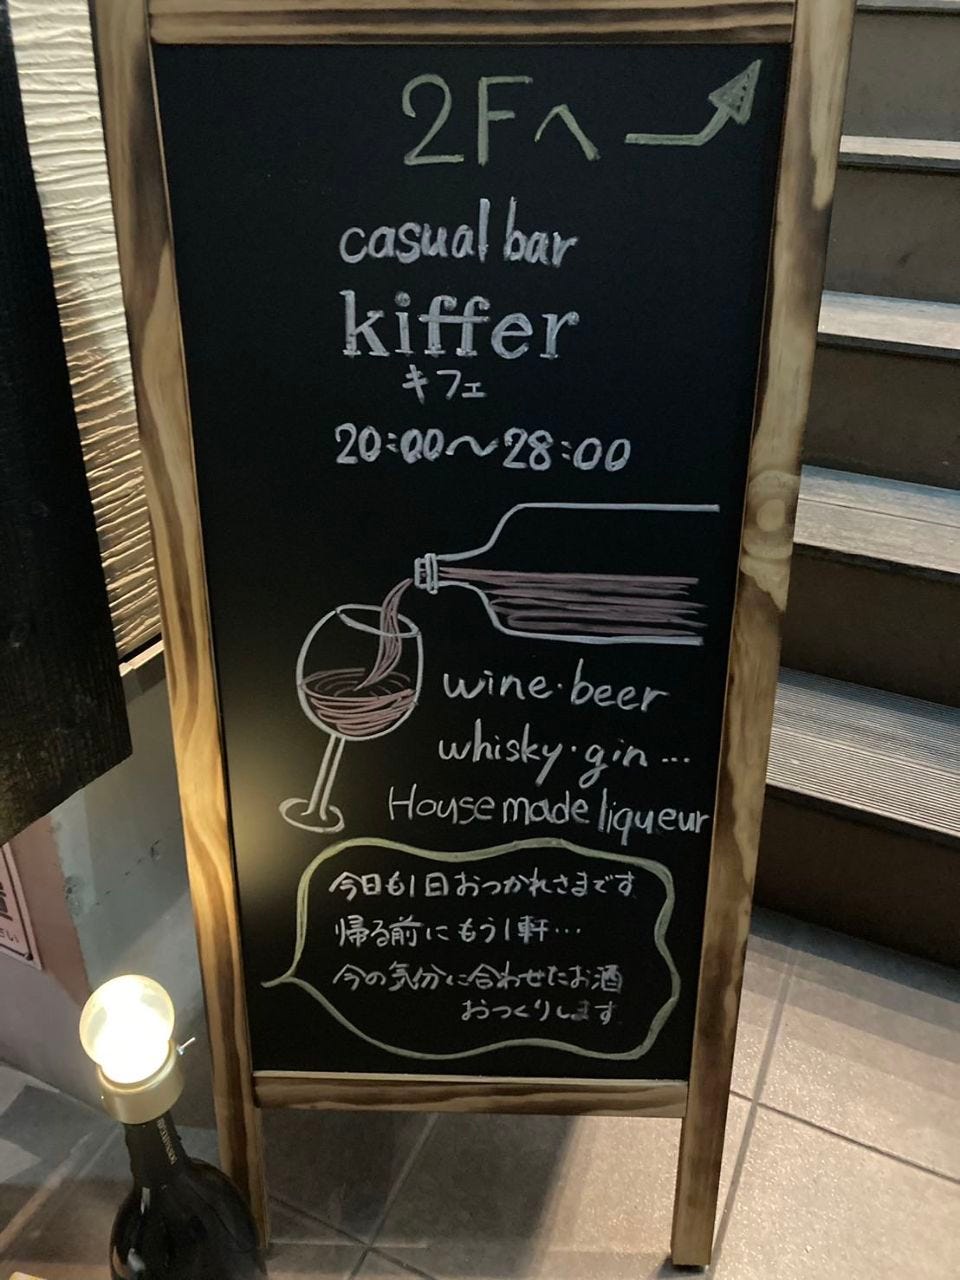 2Fへ
casual bar
kiffer
キフェ
20:00〜28:00
wine・beer
whisky・gin…
House made liqueur
今日も1日おつかれさまです
帰る前にもう1軒…
今の気分に合わせたお酒
おつくりします
さい